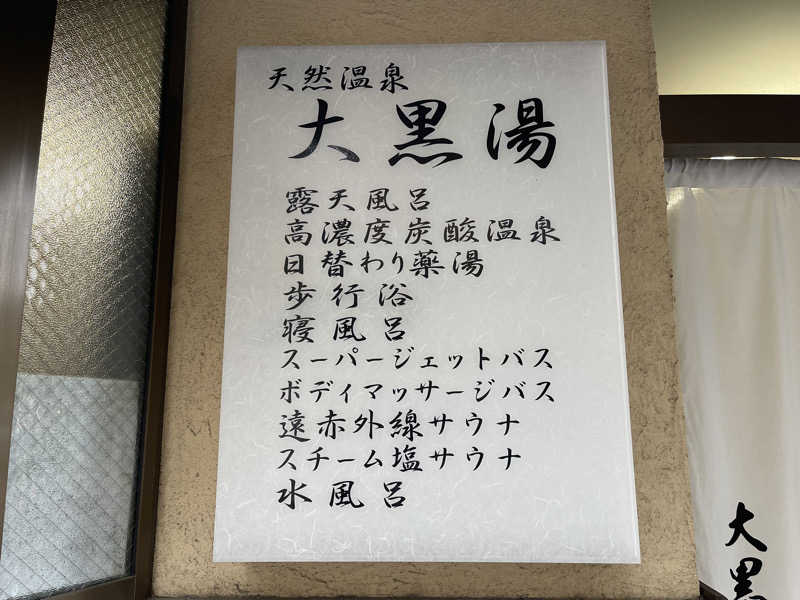 天然温泉
大黒湯
露天風呂
高濃度炭酸温泉
日替わり薬湯
歩行浴
寝風呂
スーパージェットバス
ボディマッサージバス
遠赤外線サウナ
スチーム塩サウナ
水風呂
大黒